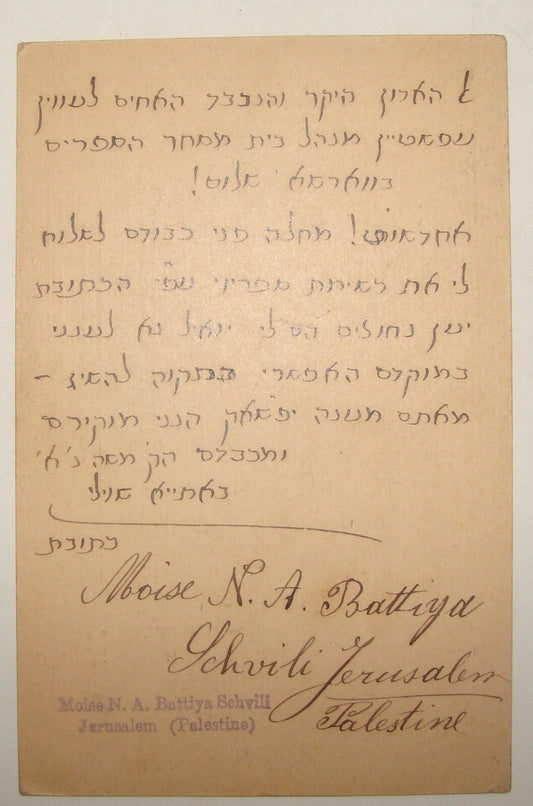 ל האדון היקר והנכבד האחים לעווין
עפשטיין מנהל בית מסחר הספרים
בווארשא שלום!
אחדשות! מחלה פני כבודם לשלוח
לי את רשימת ספריו עפ״י הכתובת
יואיל נא לענני
במוקדם האפשרי בתקוה להשיג -
מאתם מענה הנני מוקירם
ומכבדם הק׳ משה נ׳ א׳
באתייא שוילי
כתובת
Moise N. A. Battiya
Schvili Jerusalem
Palestine
Moise N. A. Battiya Schvili
Jerusalem (Palestine)